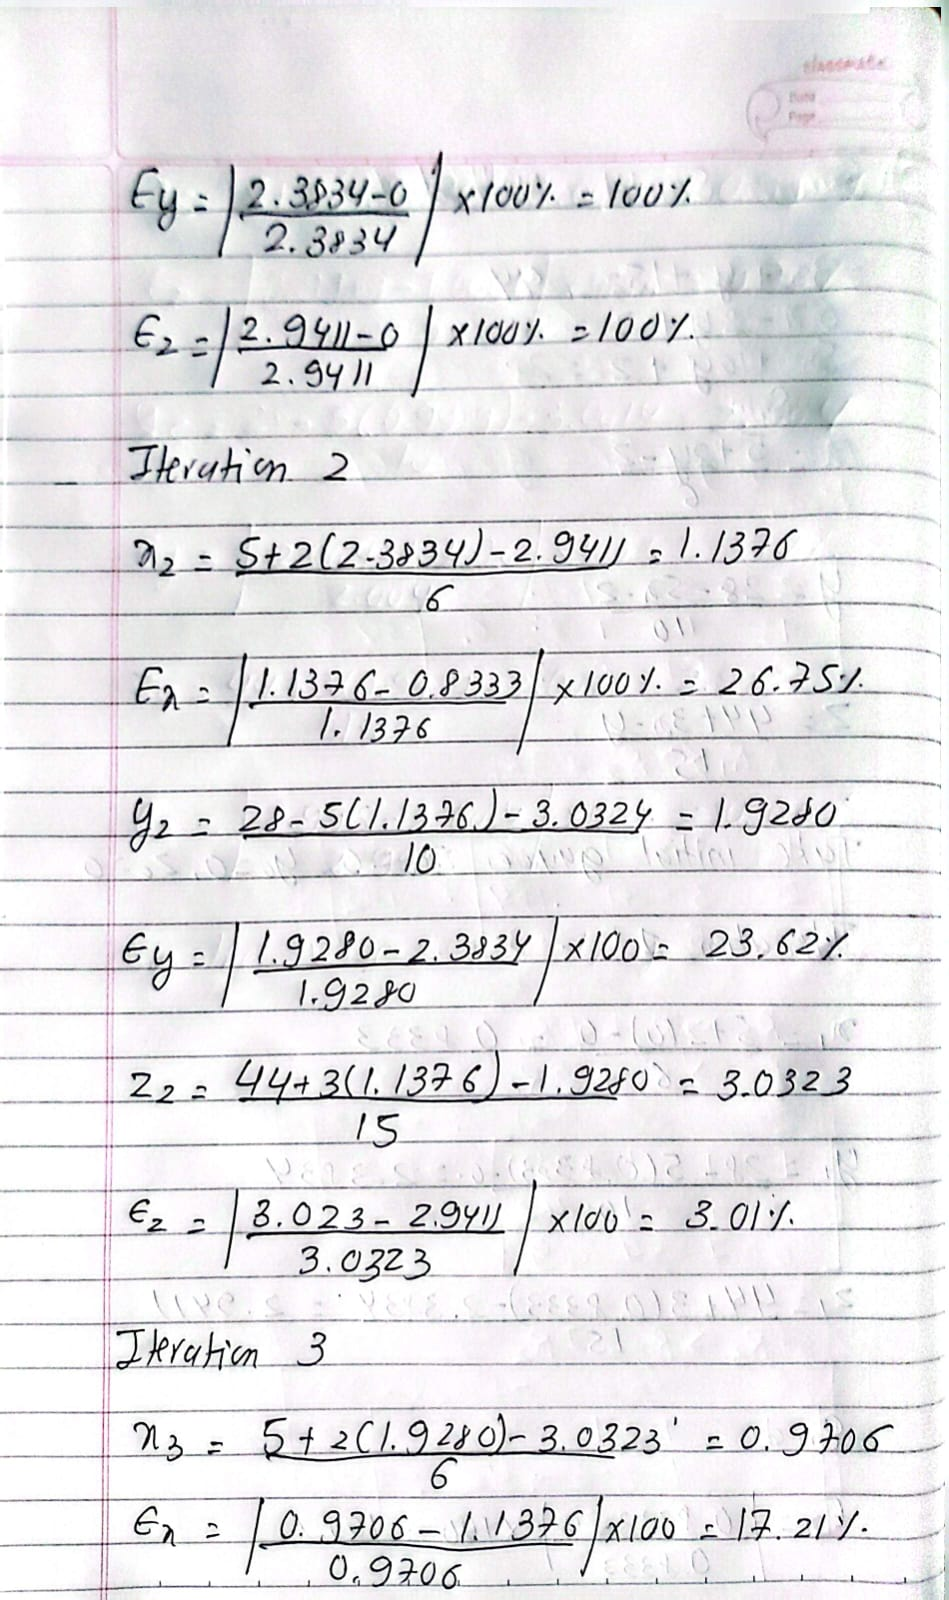 classmate
Date
Page
Ey = |2.3834-0 / 2.3834| x100% = 100%
Ez = |2.9411-0 / 2.9411| x100% = 100%
Iteration 2
x2 = 5+2(2.3834)-2.9411 / 6 = 1.1376
Ex = |1.1376-0.8333 / 1.1376| x100% = 26.75%
y2 = 28-5(1.1376)-3.0324 / 10 = 1.9280
Ey = |1.9280-2.3834 / 1.9280| x100 = 23.62%
z2 = 44+3(1.1376)-1.9280 / 15 = 3.0323
Ez = |3.023-2.9411 / 3.0323| x100 = 3.01%
Iteration 3
x3 = 5+2(1.9280)-3.0323 / 6 = 0.9706
Ex = |0.9706-1.1376 / 0.9706| x100 = 17.21%